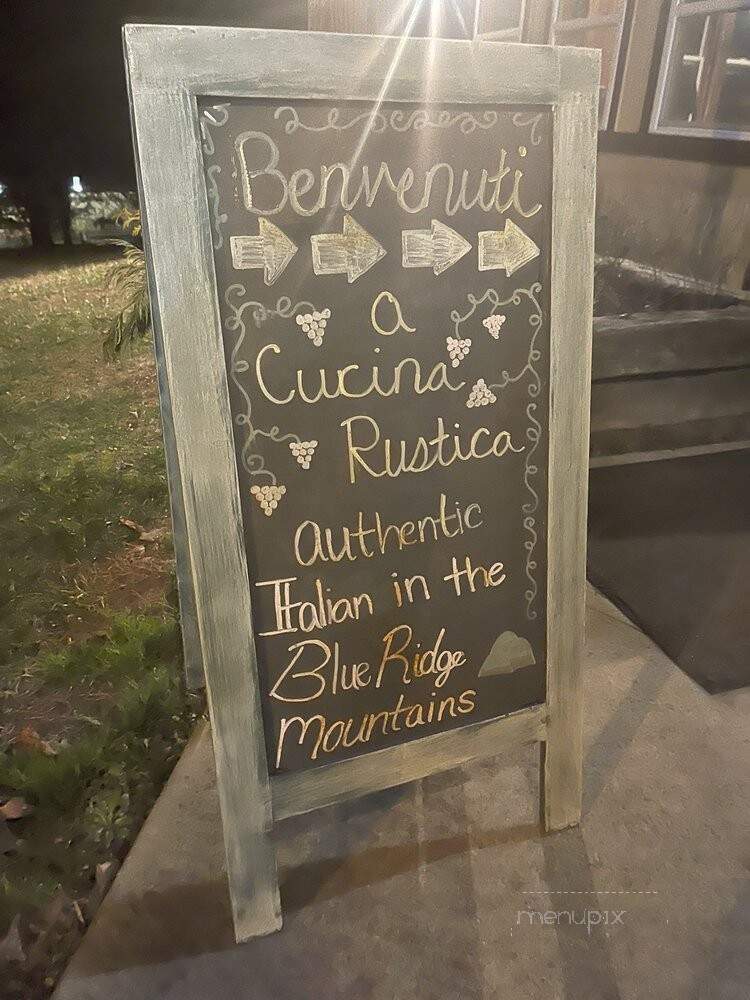 Benvenuti
a
Cucina
Rustica
authentic
Italian in the
Blue Ridge
Mountains
menupix